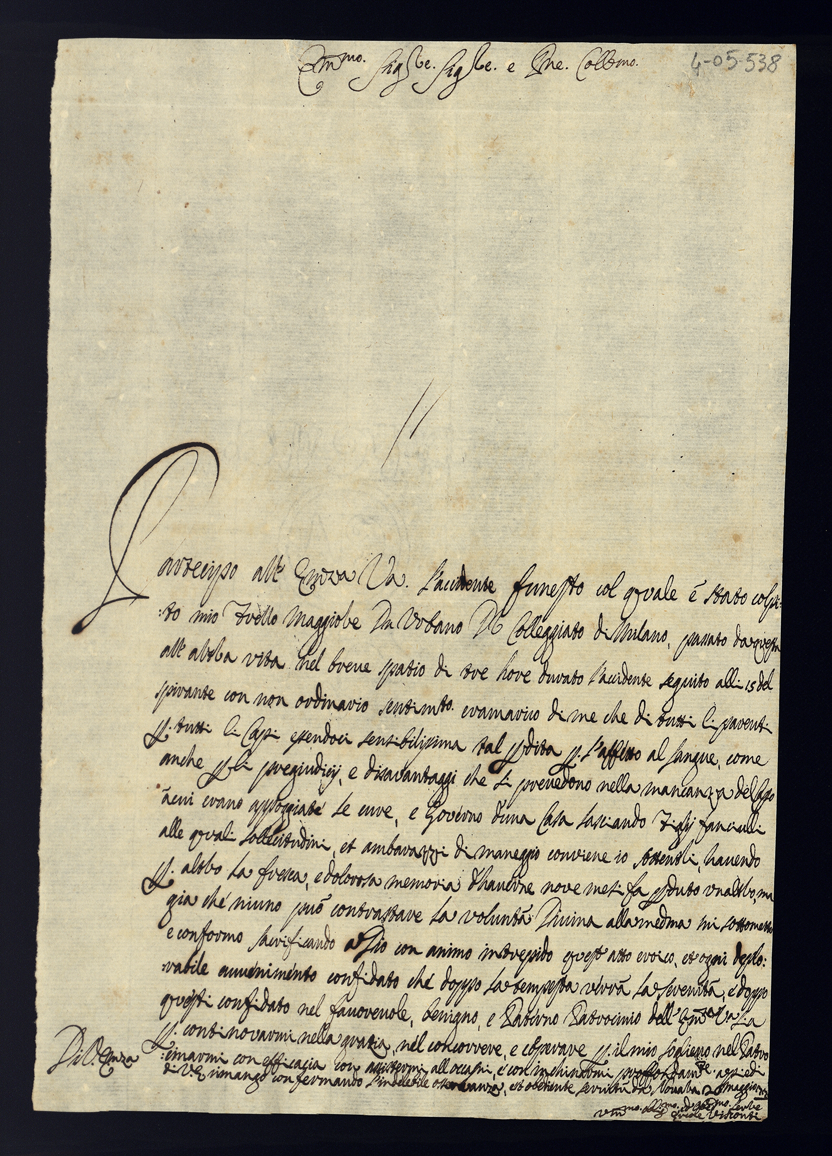 4-05-538
Em.mo Sig.re Sig.re e Pne. Coll.mo
Partecipo all' Emza Va. l'accidente funesto col quale è stato colpi:
:to mio Frello Maggiore Dn Urbano Dr Colleggiato di Milano, passato da questa
all' altra vita nel breve spatio di tre hore durato l'accidente seguito alli 15 del
spirante con non ordinario sentimto. e ramarico di me che di tutti li parenti
p. tutti li Capi essendoci sensibilissima tal pdita p. l'affetto al sangue, come
anche p li pregiudicij, e disavantaggi che si prevedono nella mancanza del
à cui erano appoggiate le cure, e Governo d'una Casa lasciando Figlij fanciulli
alle quali sollecitudini, et ambarazzi di maneggio conviene io sottentri, havendo
p. altro la fresca, e dolorosa memoria d'haverne nove mesi fa pduto un altro, ma
gia che niuno può contrastare la voluntà Divina alla medma mi sottometto
e conformo sacrificando a Dio con animo intrepido quest' atto eroico, et ogni deplo:
:rabile avvenimento confidato che doppo la tempesta verrà la serenità, e doppo
questi confidato nel favorevole, benigno, e Paterno Patrocinio dell' Emza Va sia
p. continovarmi nella gratia, nel concorrere, e cooperare p. il mio sogliego nel
:cinarmi con efficacia con assistermi all' occasni, e con inchinarmi profondamte. a piedi
di VE rimango confermando l'indelebile osservanza, et obediente servitù da Novara
Di V. Emza
Servre
Visconti